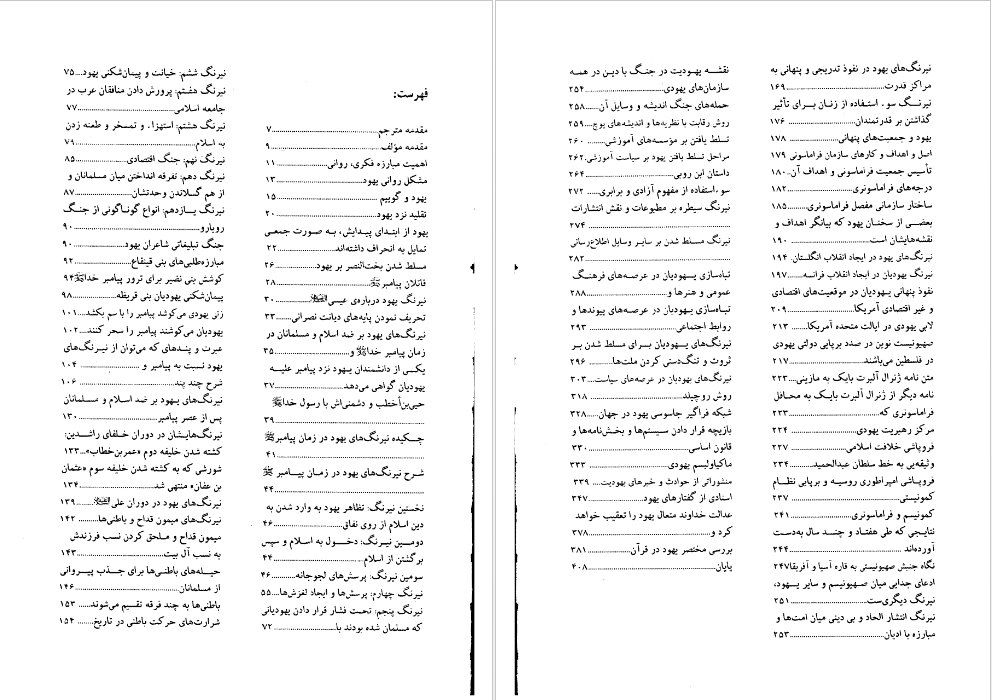 فهرست:
مقدمه مترجم ۷
مقدمه مؤلف ۹
اهمیت مبارزه فکری، روانی ۱۱
مشکل روانی یهود ۱۳
یهود و گوییم ۱۵
تقلید نزد یهود ۲۰
یهود از ابتدای پیدایش، به صورت جمعی
تمایل به انحراف داشته‌اند ۲۲
مسلط شدن بخت‌النصر بر یهود ۲۶
قاتلان پیامبر ۲۸
نیرنگ یهود درباره‌ی عیسی ۳۰
تحریف نمودن پایه‌های دیانت نصرانی ۳۳
نیرنگ‌های یهود بر ضد اسلام و مسلمانان در
زمان پیامبر خدا ﷺ و ۳۵
یکی از دانشمندان یهود نزد پیامبر علیه
یهودیان گواهی می‌دهد ۳۷
حیی‌بن‌أخطب و دشمنی‌اش با رسول خدا ﷺ
۳۹
چکیده نیرنگ‌های یهود در زمان پیامبر ﷺ
۴۱
شرح نیرنگ‌های یهود در زمان پیامبر ﷺ
۴۴
نخستین نیرنگ: تظاهر یهود به وارد شدن به
دین اسلام از روی نفاق ۴۶
دومین نیرنگ: دخول به اسلام و سپس
برگشتن از اسلام ۴۴
سومین نیرنگ: پرسش‌های لجوجانه ۴۶
نیرنگ چهارم: پرسش‌ها و ایجاد لغزش‌ها ۵۵
نیرنگ پنجم: تحت فشار قرار دادن یهودیانی
که مسلمان شده بودند با ۷۲
نیرنگ ششم: خیانت و پیمان‌شکنی یهود ۷۵
نیرنگ هفتم: پرورش دادن منافقان عرب در
جامعه اسلامی ۷۷
نیرنگ هشتم: استهزاء و تمسخر و طعنه زدن
به اسلام ۷۹
نیرنگ نهم: جنگ اقتصادی ۸۵
نیرنگ دهم: تفرقه انداختن میان مسلمانان و
از هم گسلاندن وحدتشان ۸۷
نیرنگ یازدهم: انواع گوناگونی از جنگ
رویارو ۹۰
جنگ تبلیغاتی شاعران یهود ۹۰
مبارزه‌طلبی‌های بنی قینقاع ۹۲
کوشش بنی نضیر برای ترور پیامبر خدا ﷺ ۹۴
پیمان‌شکنی یهودیان بنی قریظه ۹۸
زنی یهودی می‌کوشد پیامبر را با سم بکشد ۱۰۱
یهودیان می‌کوشند پیامبر را سحر کنند ۱۰۲
عبرت و پندهای که می‌توان از نیرنگ‌های
یهود نسبت به پیامبر و ۱۰۴
شرح چند پند ۱۰۶
نیرنگ‌های یهود بر ضد اسلام و مسلمانان
پس از عصر پیامبر ۱۳۰
نیرنگ‌هایشان در دوران خلفای راشدین:
کشته شدن خلیفه دوم «عمربن‌خطاب» ۱۳۳
شورشی که به کشته شدن خلیفه سوم «عثمان
بن عفان» منتهی شد ۱۳۴
نیرنگ‌های یهود در دوران علی ۱۳۹
نیرنگ‌های میمون قداح و باطنی‌ها ۱۴۲
میمون قداح و ملحق کردن نسب فرزندش
به نسب آل بیت ۱۴۳
حیله‌های باطنی‌ها برای جذب پیروانی
از مسلمانان ۱۴۶
باطنی‌ها به چند فرقه تقسیم می‌شوند ۱۵۳
شرارت‌های حرکت باطنی در تاریخ ۱۵۴
نیرنگ‌های یهود در نفوذ تدریجی و پنهانی به
مراکز قدرت ۱۶۹
نیرنگ سوء استفاده از زنان برای تأثیر
گذاشتن بر قدرتمندان ۱۷۶
یهود و جمعیت‌های پنهانی ۱۷۸
اصل و اهداف و کارهای سازمان فراماسونی ۱۷۹
تأسیس جمعیت فراماسونی و اهداف آن ۱۸۰
درجه‌های فراماسونری ۱۸۲
ساختار سازمانی مفصل فراماسونری ۱۸۵
بعضی از سخنان یهود که بیانگر اهداف و
نقشه‌هایشان است ۱۹۰
نیرنگ‌های یهود در ایجاد انقلاب انگلستان ۱۹۴
نیرنگ یهودیان در ایجاد انقلاب فرانسه ۱۹۷
نفوذ پنهانی یهودیان در موقعیت‌های اقتصادی
و غیر اقتصادی آمریکا ۲۰۹
لابی یهودی در ایالت متحده آمریکا ۲۱۳
صهیونیست نوین در صدد برپایی دولتی یهودی
در فلسطین می‌باشند ۲۱۷
متن نامه ژنرال آلبرت بایک به مازینی ۲۲۳
نامه دیگر از ژنرال آلبرت بایک به محافل
فراماسونری که ۲۲۳
مرکز رهبریت یهودی ۲۲۴
فروپاشی خلافت اسلامی ۲۲۷
وثیقه‌یی به خط سلطان عبدالحمید ۲۳۴
فروپاشی امپراطوری روسیه و برپایی نظام
کمونیستی ۲۳۷
کمونیسم و فراماسونری ۲۴۱
نتایجی که طی هفتاد و چند سال به‌دست
آورده‌اند ۲۴۴
نگاه جنبش صهیونیستی به قاره آسیا و آفریقا ۲۴۷
ادعای جدایی میان صهیونیسم و سایر یهود،
نیرنگ دیگری‌ست ۲۵۱
نیرنگ انتشار الحاد و بی دینی میان امت‌ها و
مبارزه با ادیان ۲۵۳
نقشه یهودیت در جنگ با دین در همه
سازمان‌های یهودی ۲۵۴
حمله‌های جنگ اندیشه و وسایل آن ۲۵۸
روش رقابت با نظریه‌ها و اندیشه‌های پوچ ۲۵۹
تسلط یافتن بر مؤسسه‌های آموزشی ۲۶۰
مراحل تسلط یافتن یهود بر سیاست آموزشی ۲۶۲
داستان ابن روبی ۲۶۴
سوء استفاده از مفهوم آزادی و برابری ۲۷۲
نیرنگ سیطره بر مطبوعات و نقش انتشارات
۲۷۴
نیرنگ مسلط شدن بر سایر وسایل اطلاع‌رسانی
۲۸۲
تباه‌سازی یهودیان در عرصه‌های فرهنگ
عمومی و هنرها و ۲۸۸
تباه‌سازی یهودیان در عرصه‌های پیوندها و
روابط اجتماعی ۲۹۳
نیرنگ‌های یهودیان برای مسلط شدن بر
ثروت و تنگ‌دستی کردن ملت‌ها ۲۹۶
نیرنگ‌های یهودیان در عرصه‌های سیاست ۳۰۳
روش روچیلد ۳۱۸
شبکه فراگیر جاسوسی یهود در جهان ۳۲۸
بازیچه قرار دادن سیستم‌ها و بخش‌نامه‌ها و
قانون اساسی ۳۳۰
ماکیاولیسم یهودی ۳۳۳
منشوراتی از حوادث و خبرهای یهودیت ۳۳۹
اسنادی از گفتارهای یهود ۳۴۷
عدالت خداوند متعال یهود را تعقیب خواهد
کرد و ۳۷۸
بررسی مختصر یهود در قرآن ۳۸۱
پایان ۴۰۸